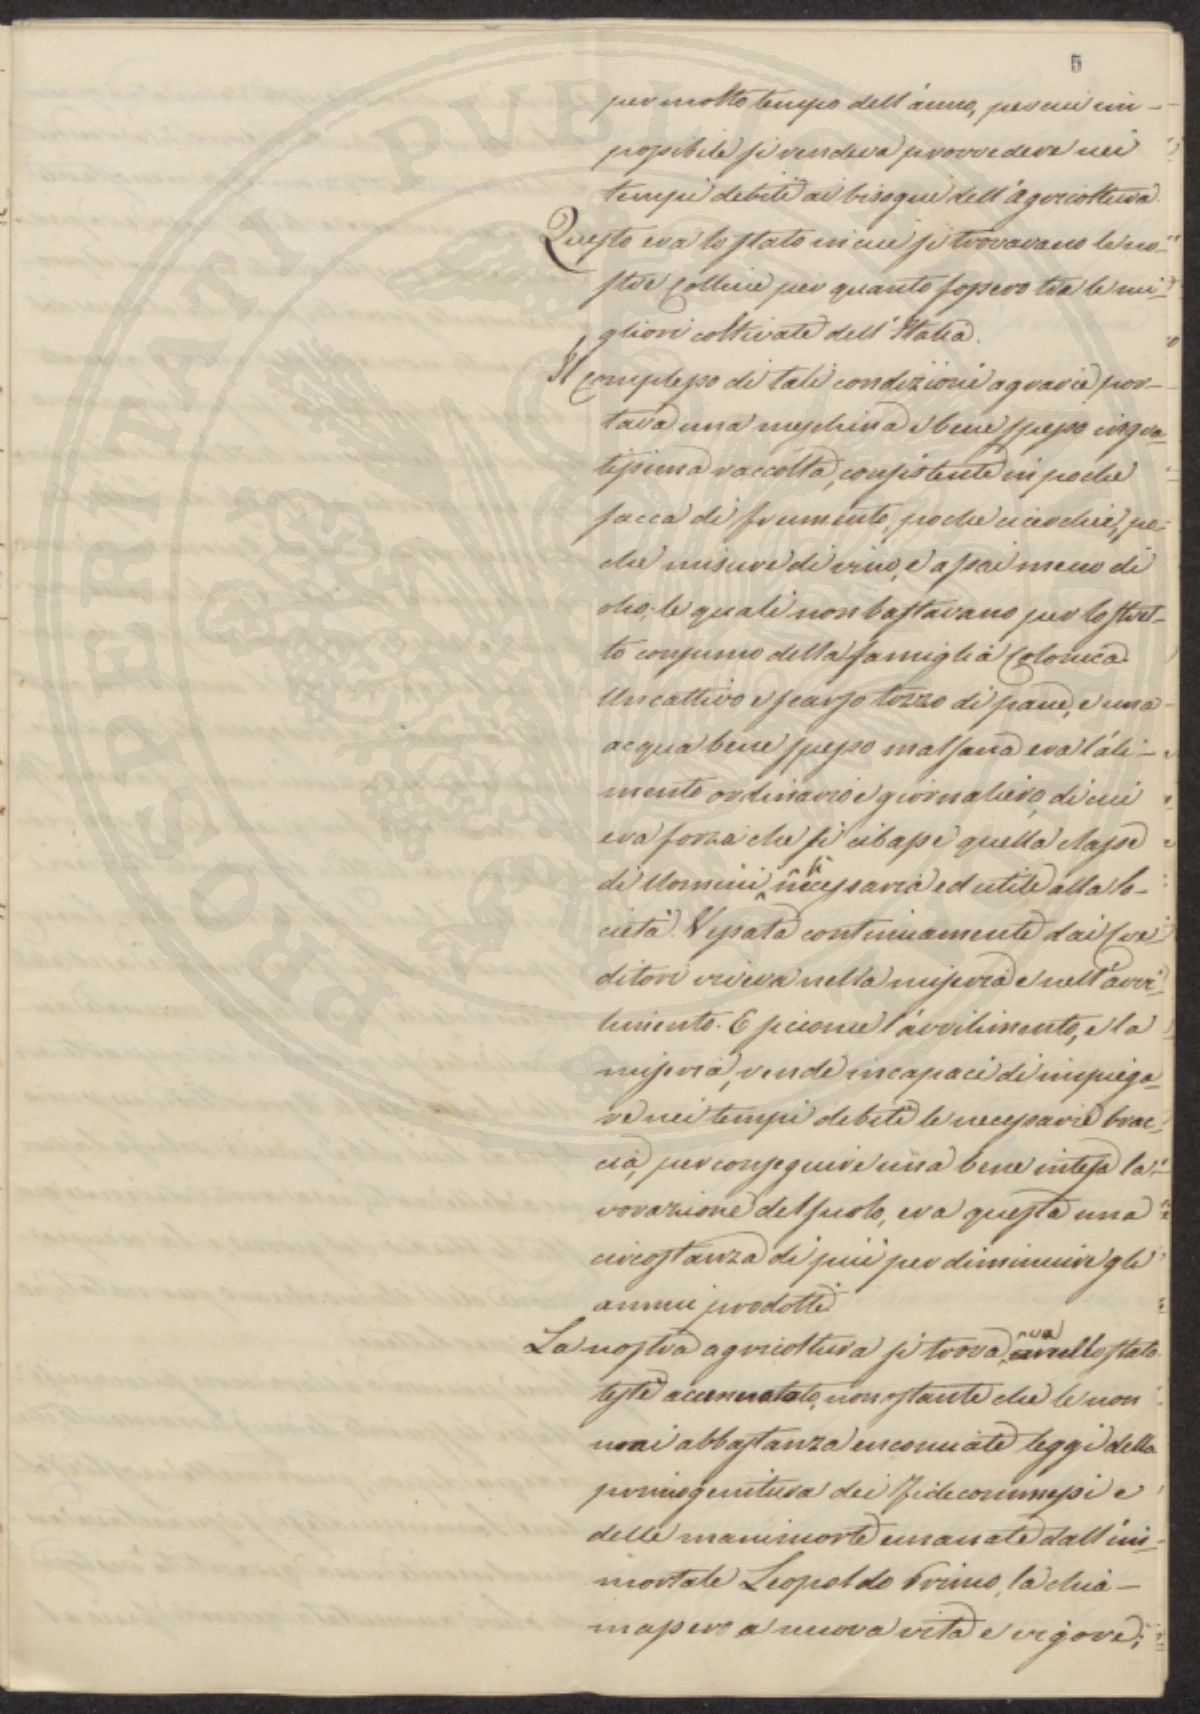 5
per molto tempo dell'anno, per cui im-
possibile si rendeva provvedere nei
tempi debiti ai bisogni dell'Agricoltura.
Questo era lo stato in cui si trovavano le no-
stre Colline per quanto fossero tra le mi-
gliori coltivate dell'Italia.
Il complesso di tali condizioni agrarie por-
tava una meschina e bene spesso ingra-
tissima raccolta, consistente in poche
sacca di frumento, poche cicerchie, po-
che misure di vino, e assai meno di
olio, le quali non bastavano per lo stret-
to consumo della famiglia Colonica.
Un cattivo e scarso tozzo di pane, e una
acqua bene spesso malsana era l'ali-
mento ordinario e giornaliero, di cui
era forza che si cibasse quella classe
di Uomini sì necessaria ed utile alla so-
cietà. Vessata continuamente dai Cre-
ditori viveva nella miseria e nell'avvi-
limento. E siccome l'avvilimento, e la
miseria, rende incapaci di impiega-
re nei tempi debiti le necessarie brac-
cia, per conseguire una bene intesa la-
vorazione del suolo, era questa una
circostanza di più per diminuire gli
annui prodotti
La nostra agricoltura si trovava nello stato
testè accennato, nonostante che le non
mai abbastanza encomiate leggi della
primogenitura dei Fidecommessi e
delle manimorte emanate dall'im-
mortale Leopoldo Primo, la chia-
massero a nuova vita e vigore;
PROSPERITATI PVBLICAE